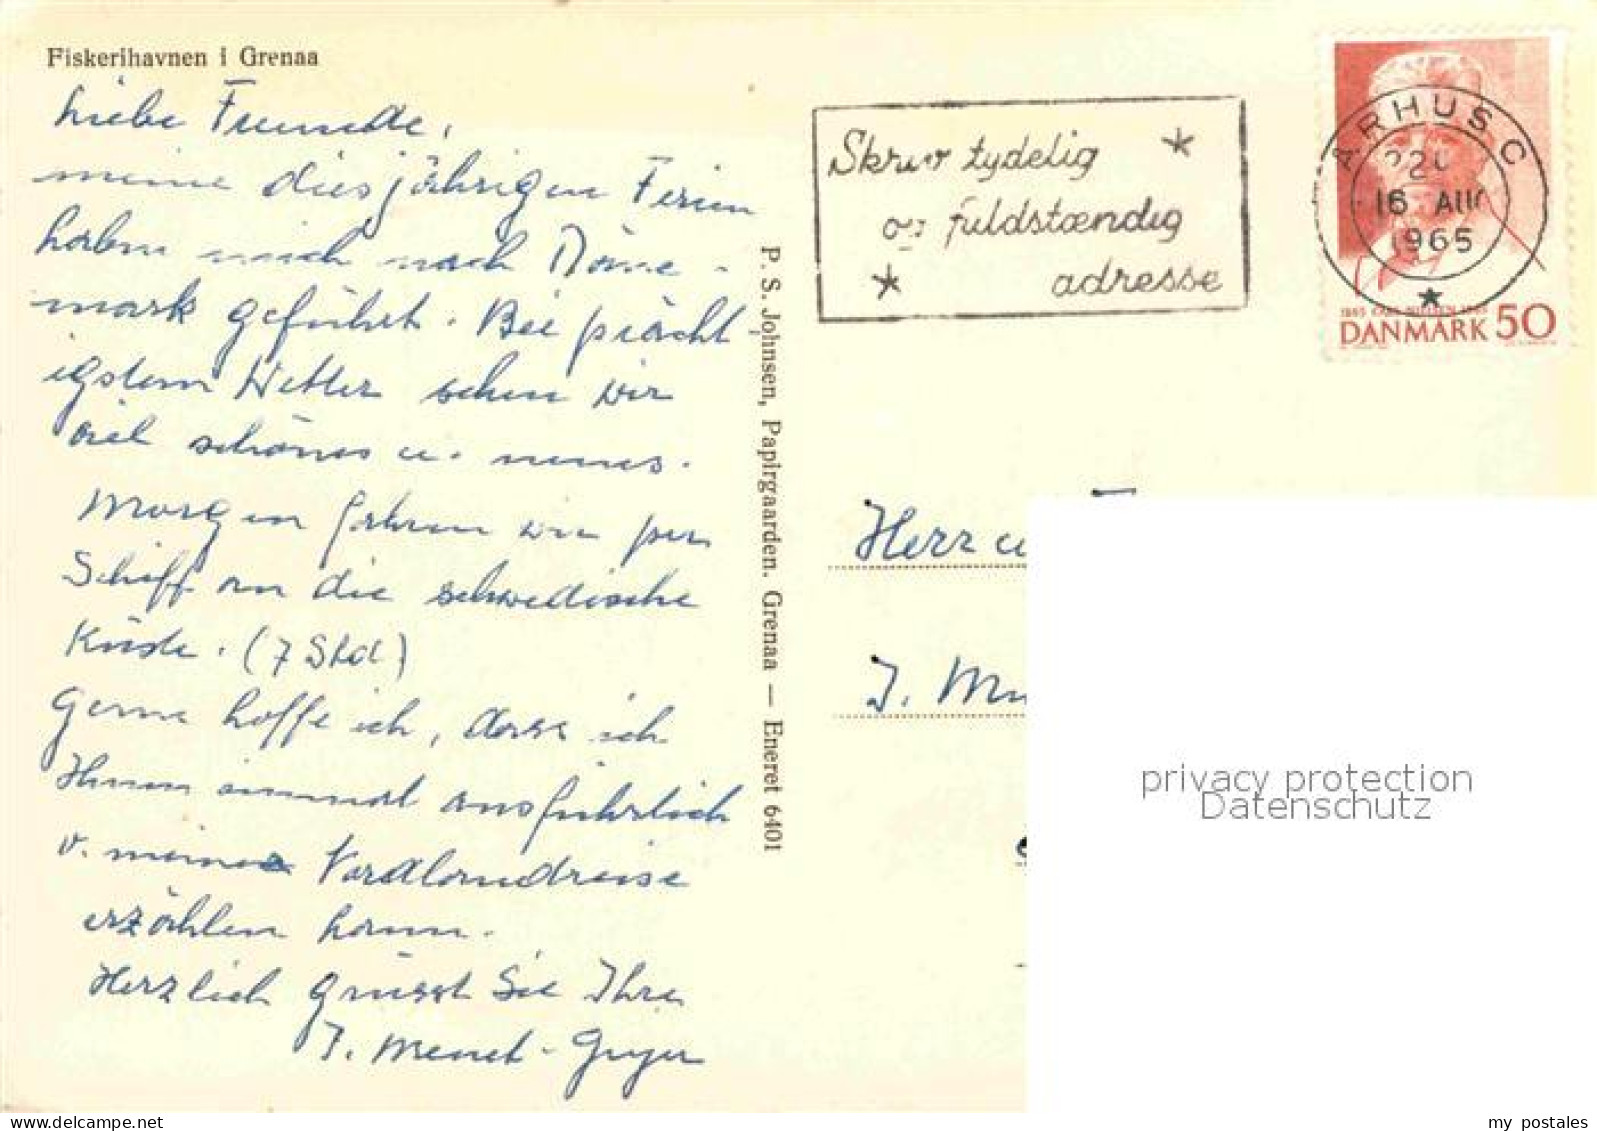 Fiskerihavnen i Grenaa
Liebe Freunde,
meine diesjährigen Ferien
haben mich nach Däne-
mark geführt. Bei prächt
igstem Wetter sehen wir
viel schönes u. neues.
Morgen fahren wir per
Schiff an die schwedische
Küste. (7 Std)
Gerne hoffe ich, dass ich
Ihnen einmal ausführlich
v. meine Nordlandreise
erzählen kann.
Herzlich grüsst Sie Ihre
J. Menet-Gyger
P. S. Johnsen, Papirgaarden. Grenaa — Eneret 6401
Skriv tydelig
og fuldstændig
adresse
AARHUS C
16 AUG
1965
1865 CARL NIELSEN 1965
DANMARK 50
Herr u
J. Mu
privacy protection
Datenschutz
my postales